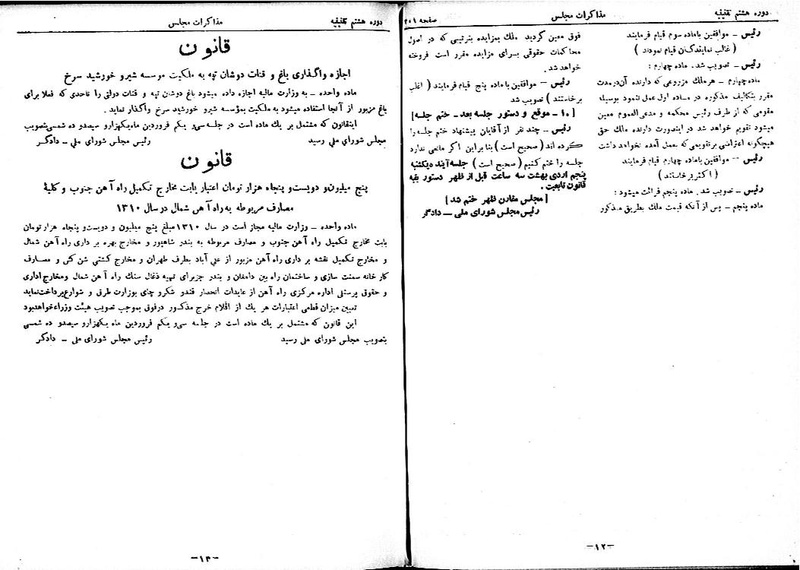 دوره هشتم تقنینیه
مذاکرات مجلس
صفحه ۲۰۱
رئیس ـ موافقین با ماده سوم قیام فرمایند
( غالب نمایندگان قیام نمودند )
رئیس ـ تصویب شد . ماده چهارم :
ماده چهارم ـ هر ملك مزروعی که دارنده آن در مدت
مقرر بتکالیف مذکوره در ماده اول عمل ننمود بوسیله
مقومی که از طرف رئیس محکمه و مدعی العموم معین
میشود تقویم خواهد شد در اینصورت دارنده ملك حق
هیچگونه اعتراضی بر تقویمی که بعمل آمده نخواهد داشت
رئیس ـ موافقین با ماده چهارم قیام فرمایند
( اکثر برخاستند )
رئیس ـ تصویب شد . ماده پنجم قرائت میشود :
ماده پنجم ـ پس از آنکه قیمت ملك بطریق مذکور
فوق معین گردید ملك بمزایده بترتیبی که در اصول
محاکمات حقوقی برای مزایده مقرر است فروخته
خواهد شد .
رئیس ـ موافقین با ماده پنج قیام فرمایند ( اغلب
برخاستند ) تصویب شد
[ ۱۰ ـ موقع و دستور جلسه بعد ـ ختم جلسه ]
رئیس ـ چند نفر از آقایان پیشنهاد ختم جلسه را
کرده اند ( صحیح است ) بنابراین اگر مانعی ندارد
جلسه را ختم کنیم ( صحیح است ) جلسه آینده دیکشنبه
پنجم اردی بهشت سه ساعت قبل از ظهر دستور بقیه
قانون تابعیت .
[ مجلس مقارن ظهر ختم شد ]
رئیس مجلس شورای ملی ـ دادگر
ـ۱۲ـ
دوره هشتم تقنینیه
مذاکرات مجلس
قانون
اجازه واگذاری باغ و قنات دوشان تپه به ملکیت موسسه شیر و خورشید سرخ
ماده واحده ـ به وزارت مالیه اجازه داده میشود باغ دوشان تپه و قنات دولتی را تاحدی که فعلا برای
باغ مزبور از آنجا استفاده میشود به ملکیت بمؤسسه شیر و خورشید سرخ واگذار نماید .
اینقانون که مشتمل بر یك ماده است در جلسه سی و یکم فروردین ماه یکهزار و سیصد و ده شمسی بتصویب
مجلس شورای ملی رسید
رئیس مجلس شورای ملی ـ دادگر
قانون
پنج میلیون و دویست و پنجاه هزار تومان اعتبار بابت مخارج تکمیل راه آهن جنوب و کلیهٔ
مصارف مربوطه به راه آهن شمال در سال ۱۳۱۰
ماده واحده ـ وزارت مالیه مجاز است در سال ۱۳۱۰ مبلغ پنج میلیون و دویست و پنجاه هزار تومان
بابت مخارج تکمیل راه آهن جنوب و مصارف مربوطه به بندر شاهپور و مخارج بهره برداری راه آهن شمال
و مخارج تکمیل نقشه برداری راه آهن مزبور از علی آباد بطرف طهران و مخارج کشتی شن کش و مصارف
کارخانه سمنت سازی و ساختمان راه بین دامغان و بندر جز برای تهیه ذغال سنك راه آهن شمال و مخارج اداری
و حقوق پرسنلی اداره مرکزی راه آهن از عایدات انحصار قند و شکر و چای بوزارت طرق و شوارع پرداخت نماید
تعیین میزان قطعی اعتبارات هر یك از اقلام خرج مذکور در فوق بموجب تصویب هیئت وزراء خواهد بود
این قانون که مشتمل بر یك ماده است در جلسه سی و یکم فروردین ماه یکهزار و سیصد و ده شمسی
بتصویب مجلس شورای ملی رسید
رئیس مجلس شورای ملی ـ دادگر
ـ۱۳ـ